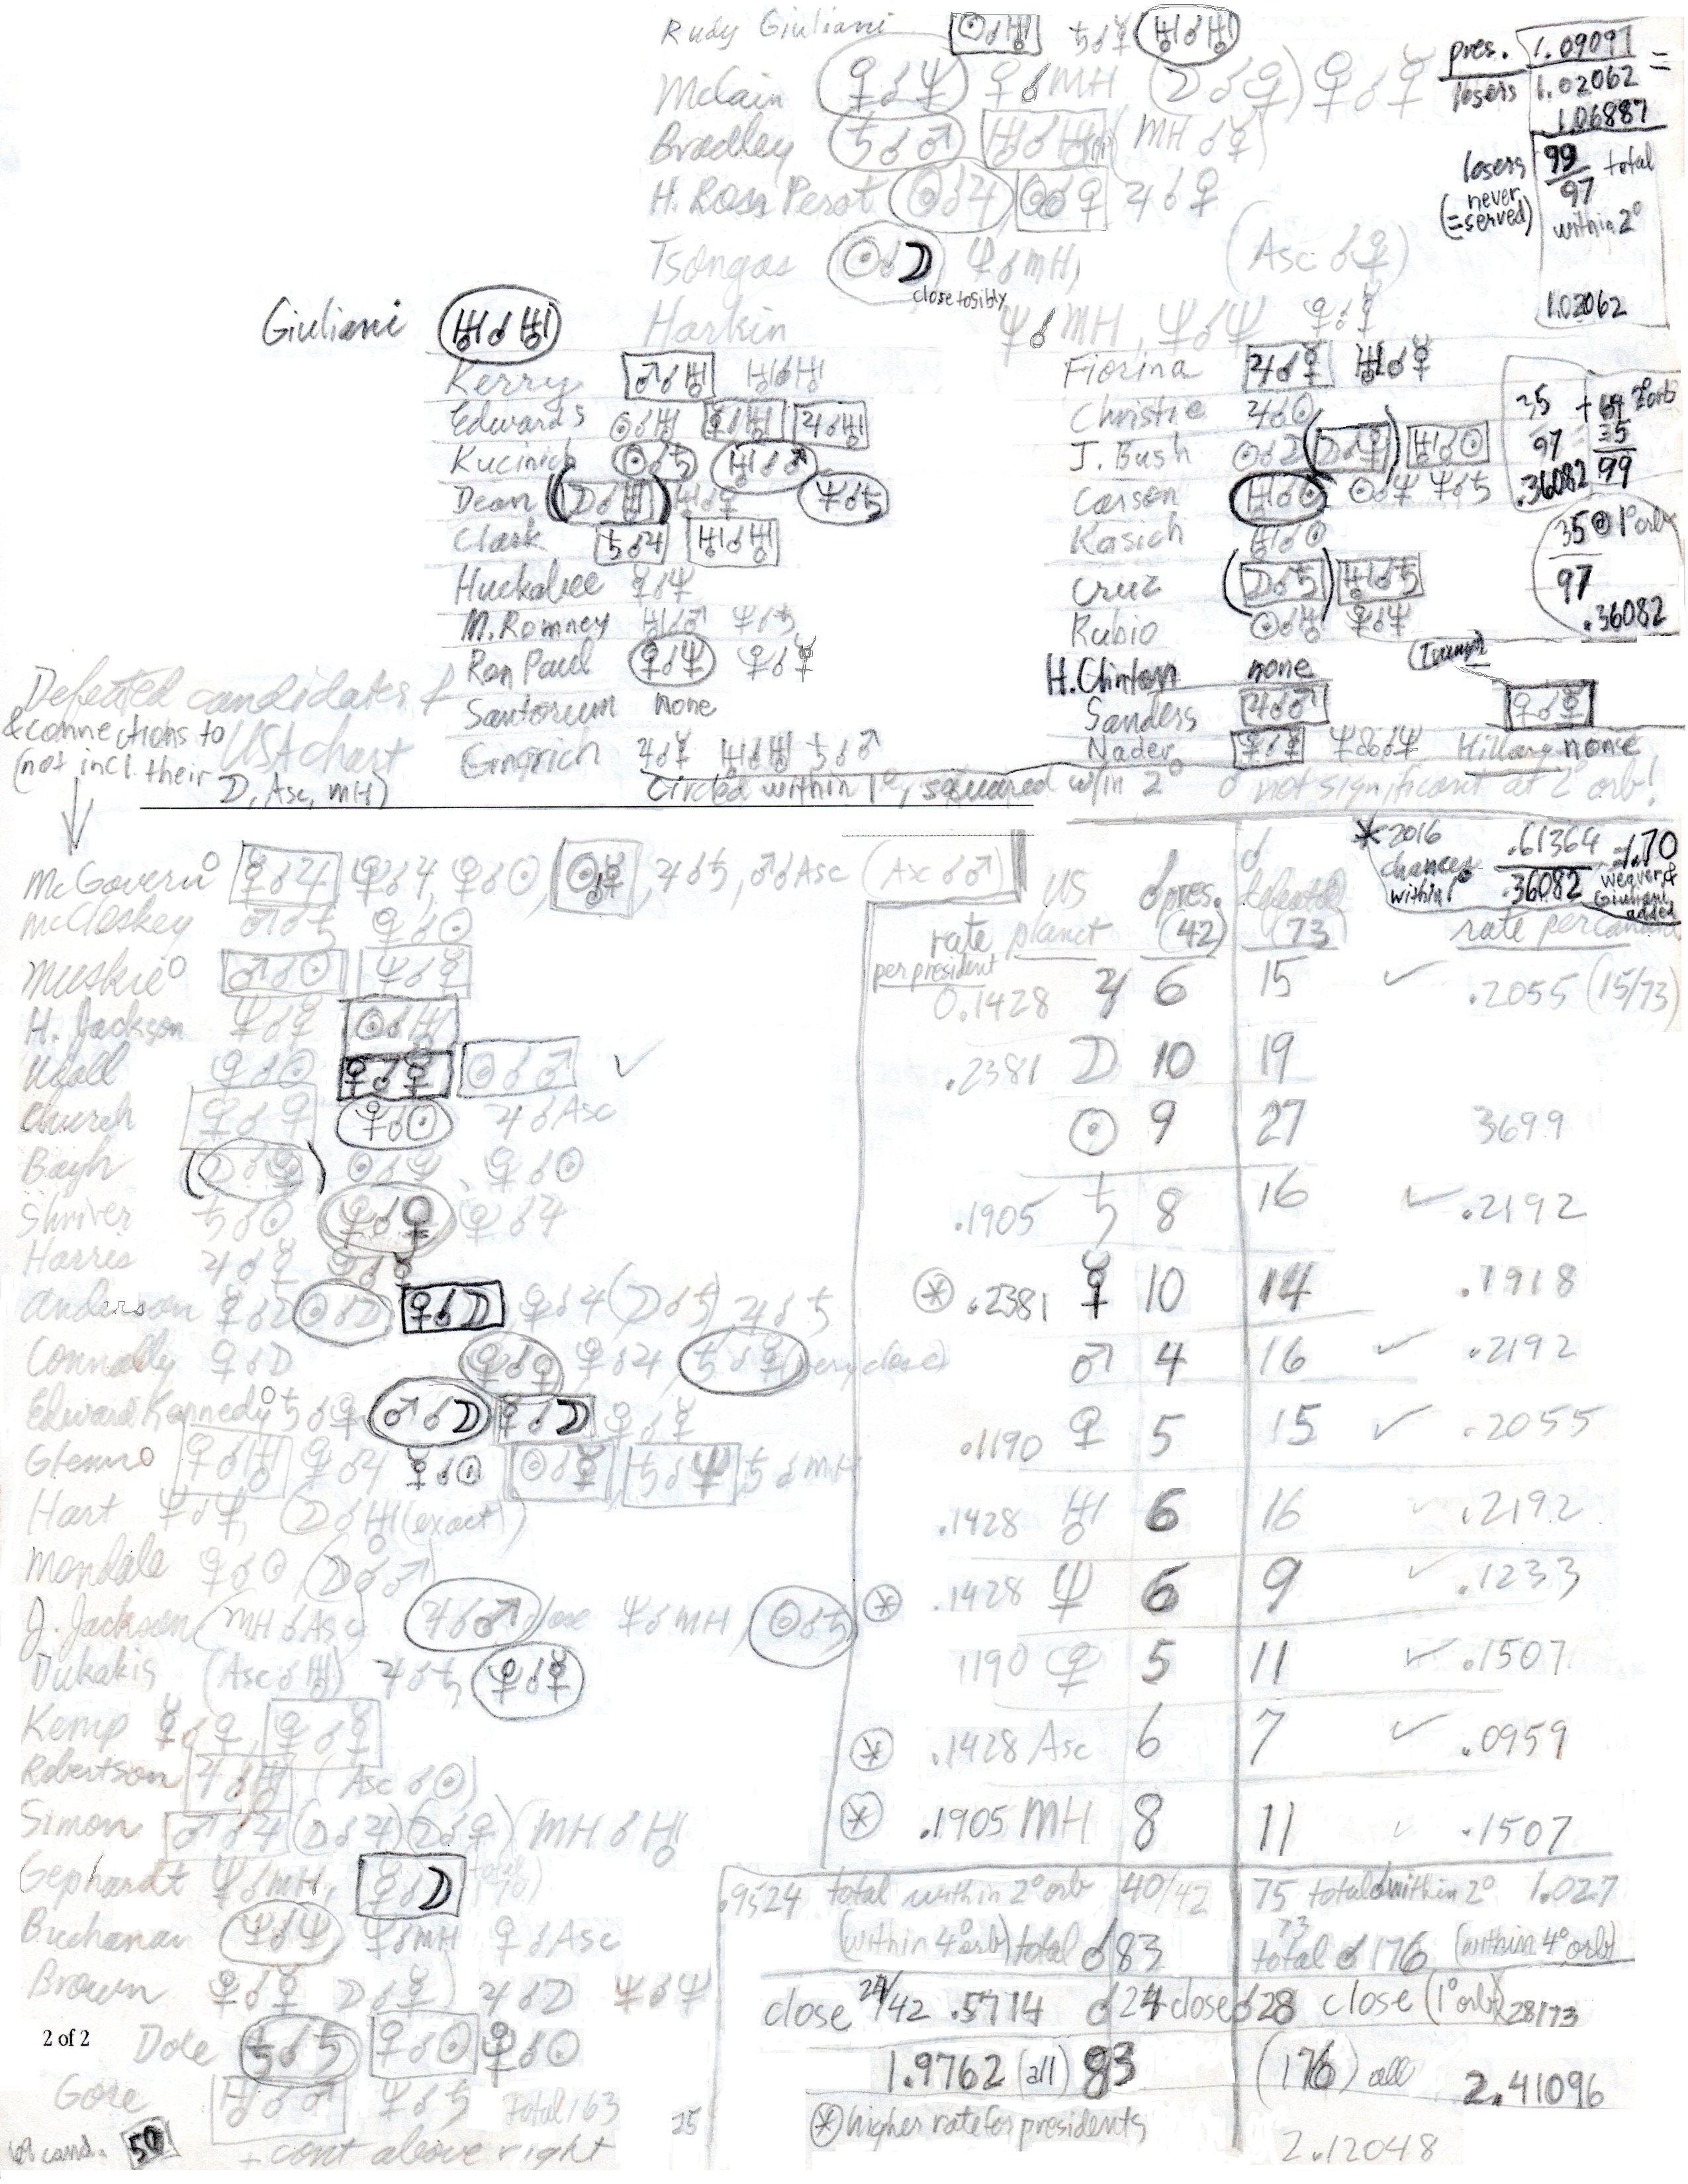 Rudy Giuliani ☉☌♅ ♄☌☿ ♅☌♅
McCain ♀☌♆ ♀☌MH (☽☌♀) ♀☌☿
Bradley ♄☌♂ ♅☌♅ (MH☌☿)
H. Ross Perot ☉☌♃ ☉☌♀ ♃☌♀
Tsongas ☉☌☽ ♆☌MH (Asc☌♀)
Harkin ♆☌MH, ♆☌♆ ♀☌☿
pres. 1.09091 =
losers 1.02062
1.06887
losers 99 total
(never served) 97
within 2°
1.02062
Giuliani ♅☌♅
Kerry ♂☌♅ ♅☌♅
Edwards ☉☌♅ ♀☌♅ ♃☌♅
Kucinich ☉☌♄ ♅☌♂
Dean (☽☌♅) ♅☌♀ ♆☌♄
Clark ♄☌♃ ♅☌♅
Huckabee ♀☌♆
M. Romney ♅☌♂ ♆☌♄
Ron Paul ♀☌♆ ♀☌☿
Santorum none
Gingrich ♃☌☿ ♅☌♅ ♄☌♂
Fiorina ♃☌☿ ♅☌☿
Christie ♃☌☉
J. Bush (☽☌♀) ♅☌☉
Carson ♅☌☉ ☉☌♆ ♆☌♄
Kasich ♅☌☉
Cruz (☽☌♄) ♅☌♄
Rubio ☉☌♅ ♀☌♆
(Trump)
H. Clinton none
Sanders ♃☌♂ ♀☌☿
Nader Hillary none
35
97
.36082
35
99
35 @ 1° orb
97
.36082
Defeated candidates
& connections to USA chart
(not incl. their
☽, Asc, MH)
Circled within 1°, squared w/in 2° ☌ not significant at 2° orb!
McGovern ♀☌♃ ♀☌♃, ♀☌☉, ☉☌☿, ♃☌♄, ♂☌Asc (Asc☌♂)
McCloskey ♂☌♄ ♀☌☉
Muskie ♂☌☉ ♆☌♀
H. Jackson ♆☌♀ ☉☌♅
Udall ♀☌☉ ♀☌☿ ☉☌♂ ✓
Church ♀☌♀ ♀☌☉ ♃☌Asc
Bayh (☽☌♀) ☉☌♀, ♀☌☉
Shriver ♄☌☉ ♀☌♀ ♀☌♃
Harris ♃☌♀
Anderson ♀☌☽ ☉☌☽ ♀☌☽ ♀☌♃ (☽☌♄) ♃☌♄
Connally ♀☌☽ ♀☌♀ ♀☌♃ ♄☌♀ (very close)
Edward Kennedy ♄☌♀ ♂☌☽ ☿☌☽ ♀☌☿
Glenn ♀☌♅ ♀☌♃ ☿☌☉ ☉☌☿ ♄☌♆ ♄☌MH
Hart ♆☌♆, (☽☌♅ (exact))
Mondale ♀☌☉ (☽☌♂)
J. Jackson (MH☌Asc) ♃☌♂ close ♆☌MH, ☉☌♄
Dukakis (Asc☌♅) ♃☌♄ ♀☌☿
Kemp ☿☌♀, ♀☌☿
Robertson ♃☌♅ (Asc☌☉)
Simon ♂☌♃ (☽☌♃) (☽☌♀) (MH☌♅
Gephardt ♆☌MH, ♀☌☽
Buchanan ♆☌♆ ♀☌MH ♀☌Asc
Brown ♀☌☿ ☽☌♀) ♃☌☽ ♆☌♆
2 of 2
Dole ♄☌♄ ♀☌☉ ♀☌☉
Gore ♅☌♂ ♆☌♄ Total 163
69 cand. 50 - cont above right
25
✱ 2016 chances within .61364 = 1.70
.36082 weaver & Giuliani added
rate per president US planet ☌ pres. (42) ☌ defeated (73)
0.1428 ♃ 6 15 ✓ .2055 (15/73)
.2381 ☽ 10 19
☉ 9 27 3699
.1905 ♄ 8 16 ✓ .2192
✱ .2381 ☿ 10 14 .1918
♂ 4 16 ✓ .2192
.1190 ♀ 5 15 ✓ .2055
.1428 ♅ 6 16 .2192
✱ .1428 ♆ 6 9 ✓ .1233
1190 ♀ 5 11 ✓ .1507
✱ .1428 Asc 6 7 ✓ .0959
✱ .1905 MH 8 11 .1507
.9524 total within 2° orb 40/42 75 total ☌ within 2° 1.027
73
(within 4° orb) total ☌ 83 total ☌ 176 (within 4° orb)
close 24/42 .5714 ☌ 24 close ☌ 28 close (1° orb) 28/73
1.9762 (all) 83 (176) all 2.41096
✱ higher rate for presidents
2.12048